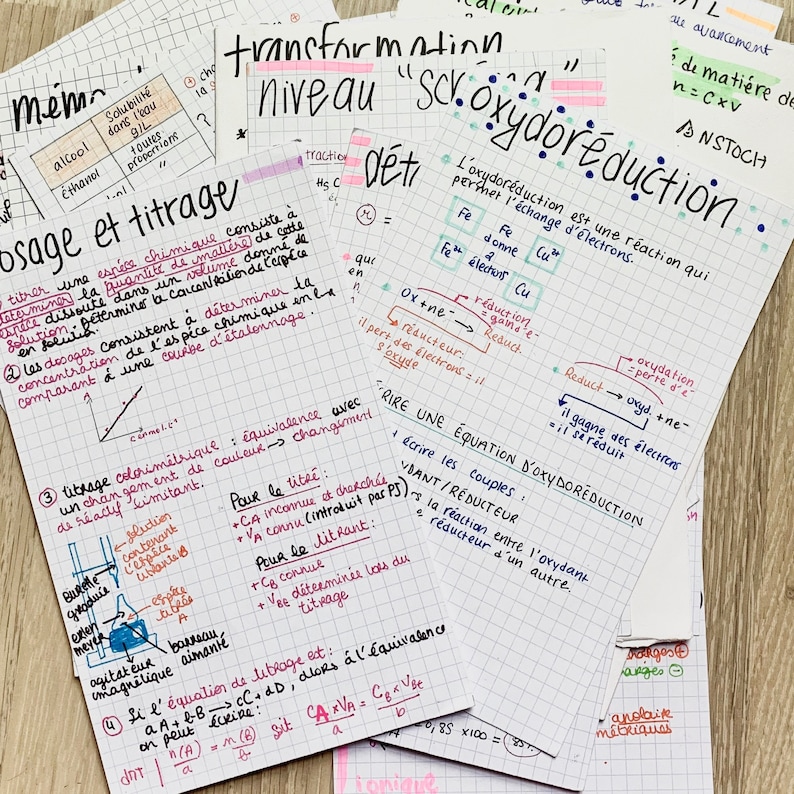 transformation
niveau "
mémo
+
alcool
Solubilité
dans l'eau
g/L
éthanol
toutes
proportions
"
?
avancement
de matière de
n = C x V
NSTOCH
oxydoréduction
L'oxydoréduction est une réaction qui
permet l'échange d'électrons.
Fe
Fe
donne
à
électrons
Cu²⁺
Fe²⁺
Cu
Ox + ne⁻ → Reduct.
réduction
= gain d'e⁻
réducteur:
il perd des électrons = il
s'oxyde
oxydation
= perte d'e⁻
Reduct → oxyd. + ne⁻
il gagne des électrons
= il se réduit
CRIRE UNE ÉQUATION D'OXYDORÉDUCTION
écrire les couples :
YDANT/RÉDUCTEUR
la réaction entre l'oxydant
réducteur d'un autre.
osage et titrage
titrer une espèce chimique consiste à
déterminer la quantité de matière de cette
espèce dissoute dans un volume donné de
solution : déterminer la concentration de l'espèce
en solution.
② Les dosages consistent à déterminer la
concentration de l'espèce chimique en la
comparant à une courbe d'étalonnage.
C en mol.L⁻¹
③ titrage colorimétrique : équivalence avec
un changement de couleur → changement
de réactif limitant.
solution
contenant
l'espèce
titrante B
burette
graduée
espèce
titrée
A
erlen
meyer
barreau
aimanté
agitateur
magnétique
Pour le titré :
+ CA inconnue et cherchée
+ VA connu (introduit par PJ)
Pour le titrant :
+ CB connue
+ VBE déterminée lors du
titrage
④ Si l'équation de titrage est :
aA + bB → cC + dD, alors à l'équivalence
on peut écrire :
n(A)/a = n(B)/b soit CA x VA/a = CB x VBE/b
0,85 x100 = 85%
apolaire
ionique